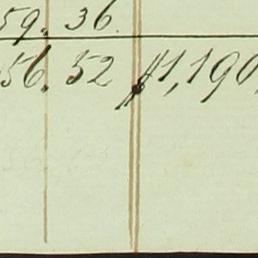 59. 36.
56. 52 $1,190.